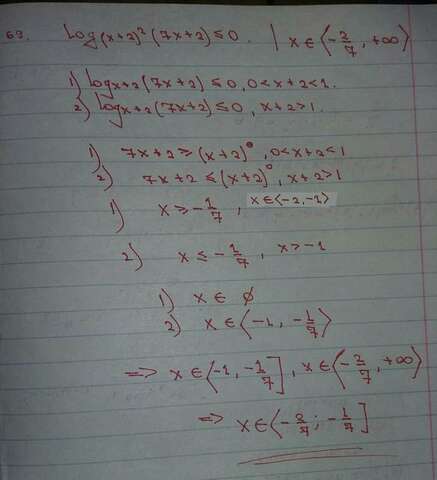 69. log(x+2)²(7x+2)≤0 | x∈⟨-2/7, +∞⟩
1) logx+2(7x+2)≤0, 0<x+2<1.
2) logx+2(7x+2)≤0, x+2>1.
1) 7x+2≥(x+2)⁰, 0<x+2<1
2) 7x+2≤(x+2)⁰, x+2>1
1) x≥-1/7, x∈<-2,-1>
2) x≤-1/7, x>-1
1) x∈∅
2) x∈⟨-1, -1/7⟩
=> x∈⟨-1, -1/7], x∈⟨-2/7, +∞⟩
=> x∈⟨-2/7; -1/7]